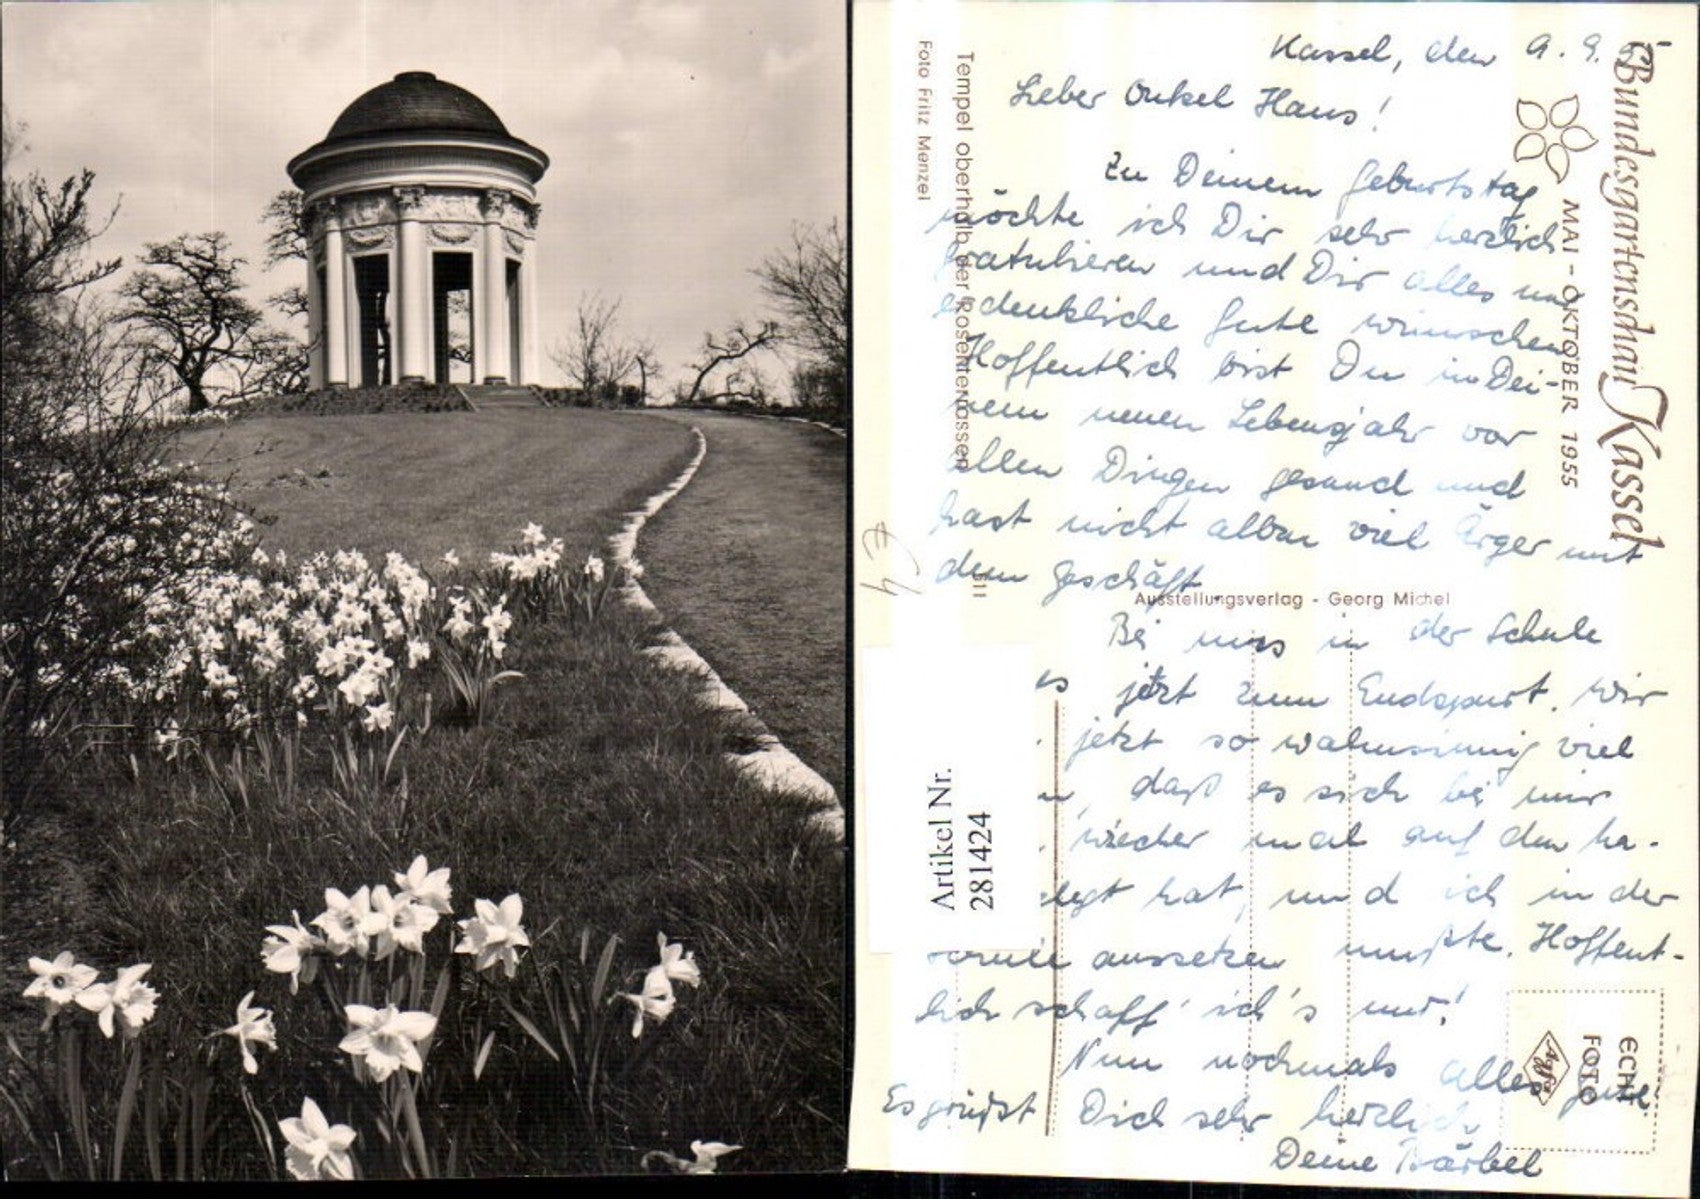 Kassel, den 9. 9.
Lieber Onkel Hans!
Zu Deinem Geburtstag
möchte ich Dir sehr herzlich
gratulieren und Dir alles nur
erdenkliche Gute wünschen
Hoffentlich bist Du in Dei-
nem neuen Lebensjahr vor
allen Dingen gesund und
hast nicht allzu viel Ärger mit
dem Geschäft
Bei uns in der Schule
es jetzt zum Endspurt. Wir
jetzt so wahnsinnig viel
daß es sich bei mir
wieder mal auf den
elegt hat, und ich in der
aussetzen mußte. Hoffent-
lich schaff' ich's nur!
Nun nochmals alles Gute
Es grüßt Dich sehr herzlich
Deine Bärbel
Bundesgartenschau Kassel
MAI - OKTOBER 1955
Tempel oberhalb der Rosenterrassen
Foto Fritz Menzel
511
Ausstellungsverlag - Georg Michel
Artikel Nr.
281424
ECHT
FOTO
Agfa